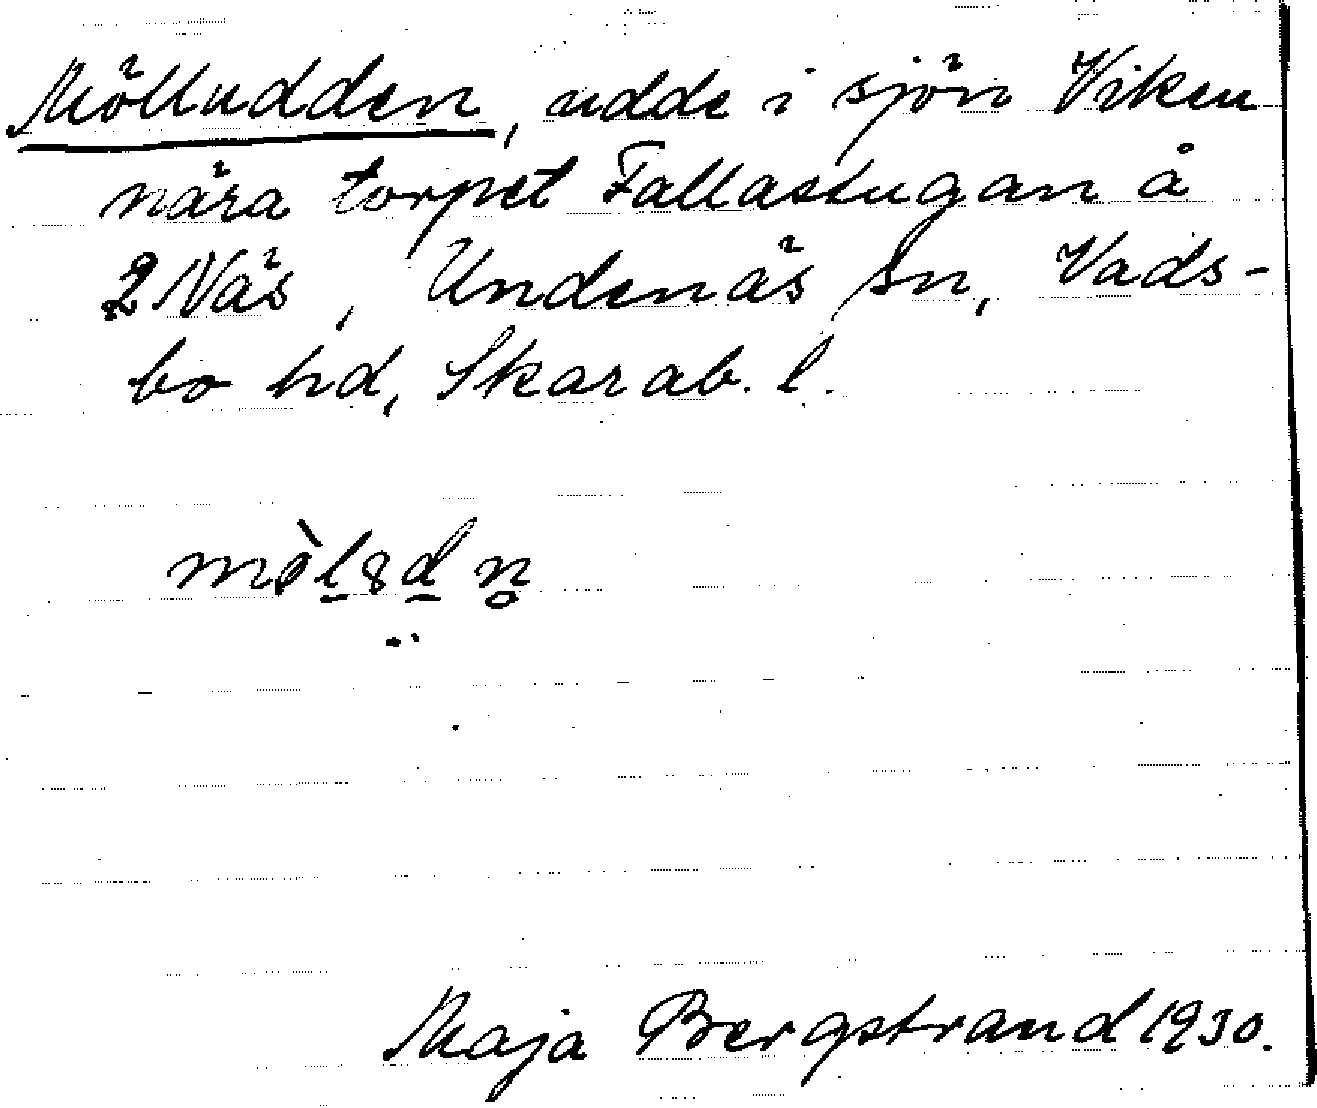 Mölludden, udde i sjön Viken
nära torpet Fallastugan å
2 Näs, Undenäs sn, Vads-
bo hd, Skarab. l.
Maja Bergstrand 1930.